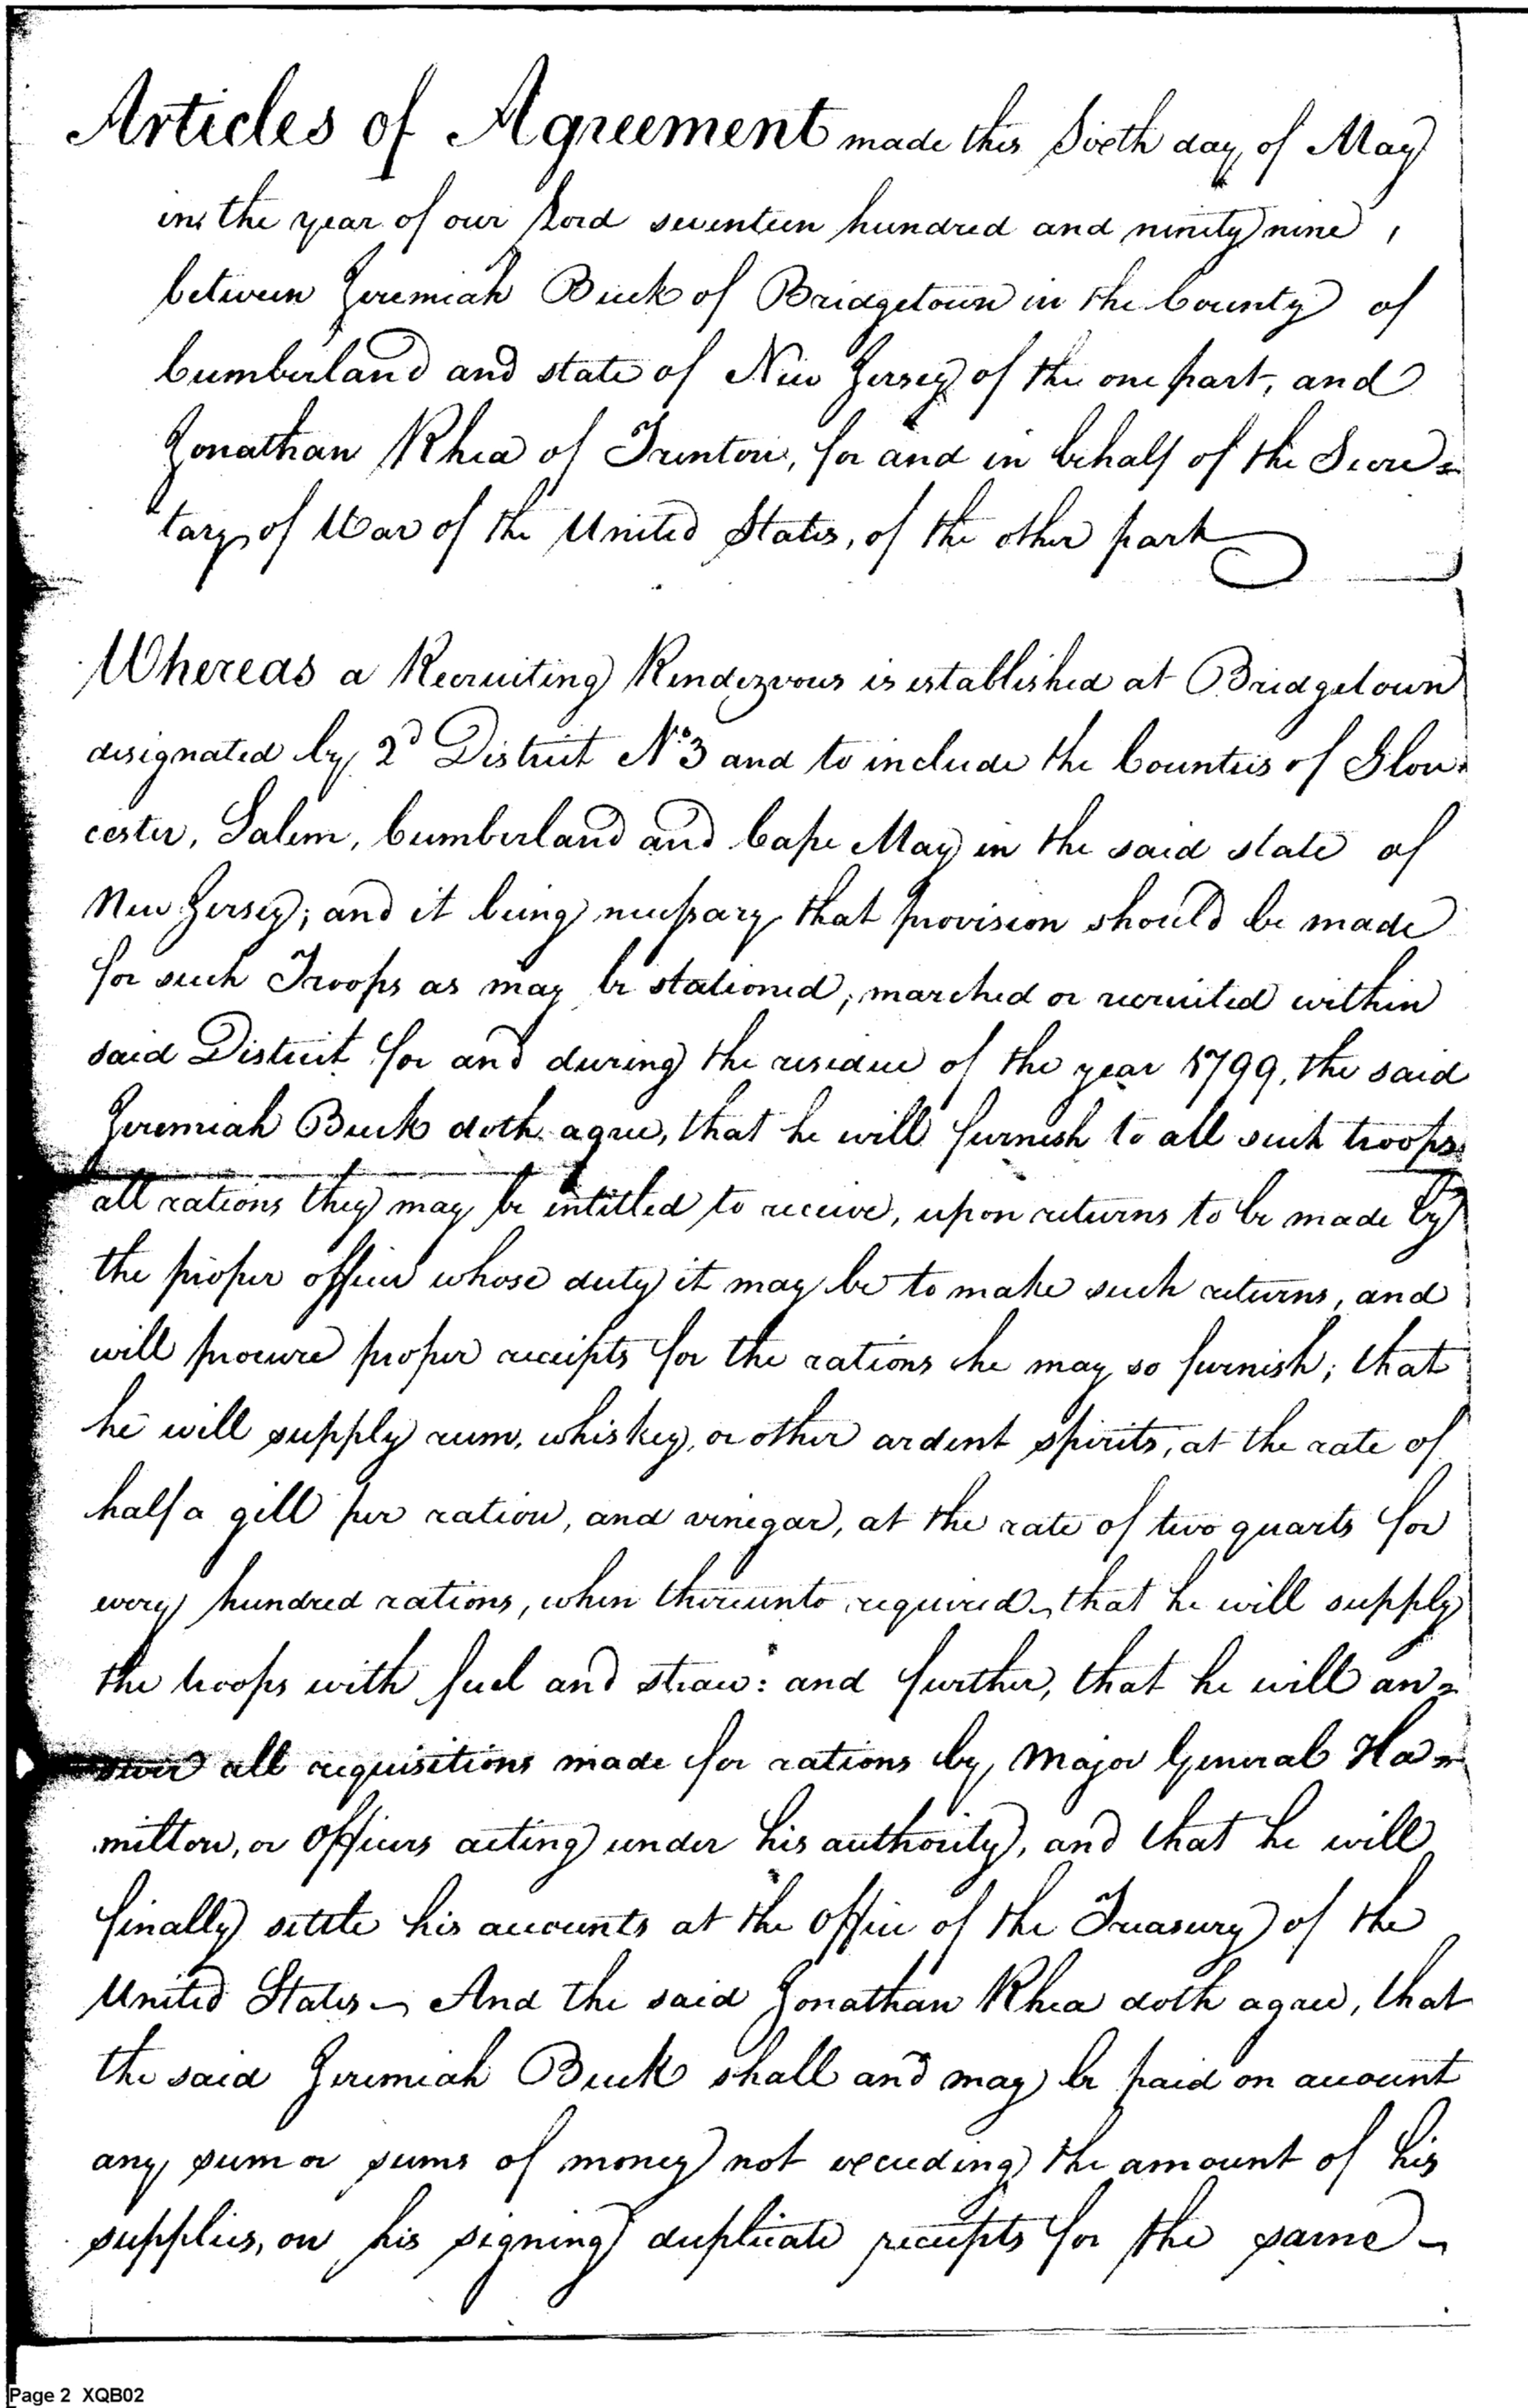 Articles of Agreement made this Sixth day of May
in the year of our Lord seventeen hundred and ninety nine,
between Jeremiah Buck of Bridgetown in the County of
Cumberland and state of New Jersey of the one part, and
Jonathan Rhea of Trenton, for and in behalf of the Secre=
tary of War of the United States, of the other part
Whereas a Recruiting Rendezvous is established at Bridgetown
designated by 2d District No 3 and to include the Counties of Glou=
cester, Salem, Cumberland and Cape May in the said state of
New Jersey; and it being necessary that provision should be made
for such Troops as may be stationed, marched or recruited within
said District for and during the residue of the year 1799, the said
Jeremiah Buck doth agree, that he will furnish to all such troops
all rations they may be intitled to receive, upon returns to be made by
the proper officer whose duty it may be to make such returns, and
will procure proper receipts for the rations he may so furnish; that
he will supply rum, whiskey, or other ardent spirits, at the rate of
half a gill per ration, and vinegar, at the rate of two quarts for
every hundred rations, when thereunto required ~ that he will supply
the troops with fuel and straw: and further, that he will an=
swer all requisitions made for rations by Major General Ha=
milton, or Officers acting under his authority, and that he will
finally settle his accounts at the Office of the Treasury of the
United States ~ And the said Jonathan Rhea doth agree, that
the said Jeremiah Buck shall and may be paid on account
any sum or sums of money not exceeding the amount of his
supplies, on his signing duplicate receipts for the same ~
Page 2 XQB02